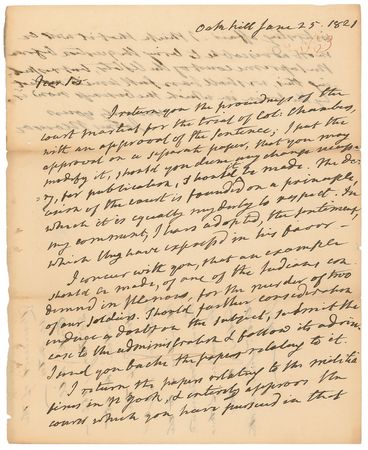 Oakhill June 25. 1821
Dear Sir
I return you the proceedings of the
court martial for the trial of Col: Chambers,
with an approval of the sentence; I put the
approval on a separate paper, that you may
modify it, should you deem any change necessa-
ry, for publication, should be made. The de-
cision of the court is founded on a principle,
which it is equally my duty to respect. In
my comment, I have adopted the sentiment,
which they have expressed in his favor—
I concur with you, that an example
should be made, of one of the Indians con-
demned in Illenois, for the murder of two
of our soldiers. Should further consideration
induce a doubt on the subject, submit the
case to the administration & follow its advice.
I send you back the papers relating to it.
I return the papers relating to the militia
fines in N York, & entirely approve the
course which you have pursued in that